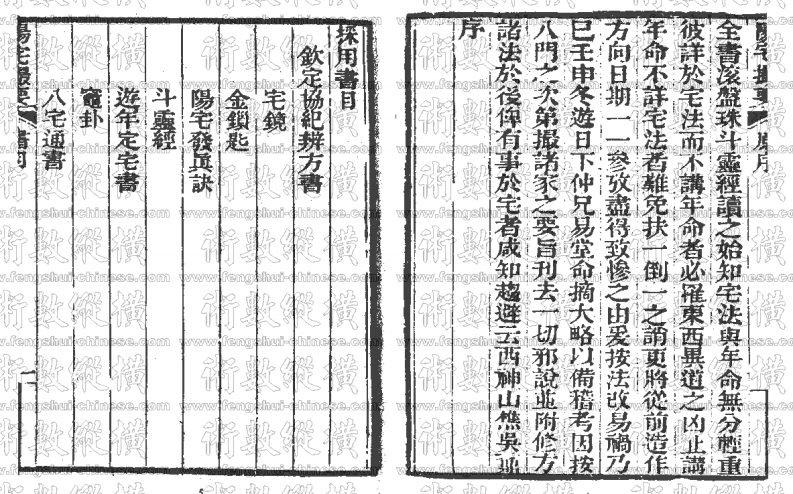 陽宅撮要
原序
全書滾盤珠斗靈經讀之始知宅法與年命無分輕重
彼詳於宅法而不講年命者必罹東西異道之凶止講
年命不詳宅法者難免扶一倒一之誚更將從前造作
方向日期一一參攷盡得致慘之由爰按法改易禍乃
已壬申冬遊日下仲兄易堂命摘大略以備稽考因按
八門之次第撮諸家之要旨刊去一切邪說並附修方
諸法於後俾有事於宅者咸知趨避云西神山樵吳鼒
序
採用書目
欽定協紀辨方書
宅鏡
金鎖匙
陽宅發真訣
斗靈經
遊年定宅書
竈卦
八宅通書
陽宅撮要
書目
一
術數縱橫
www.fengshui-chinese.com